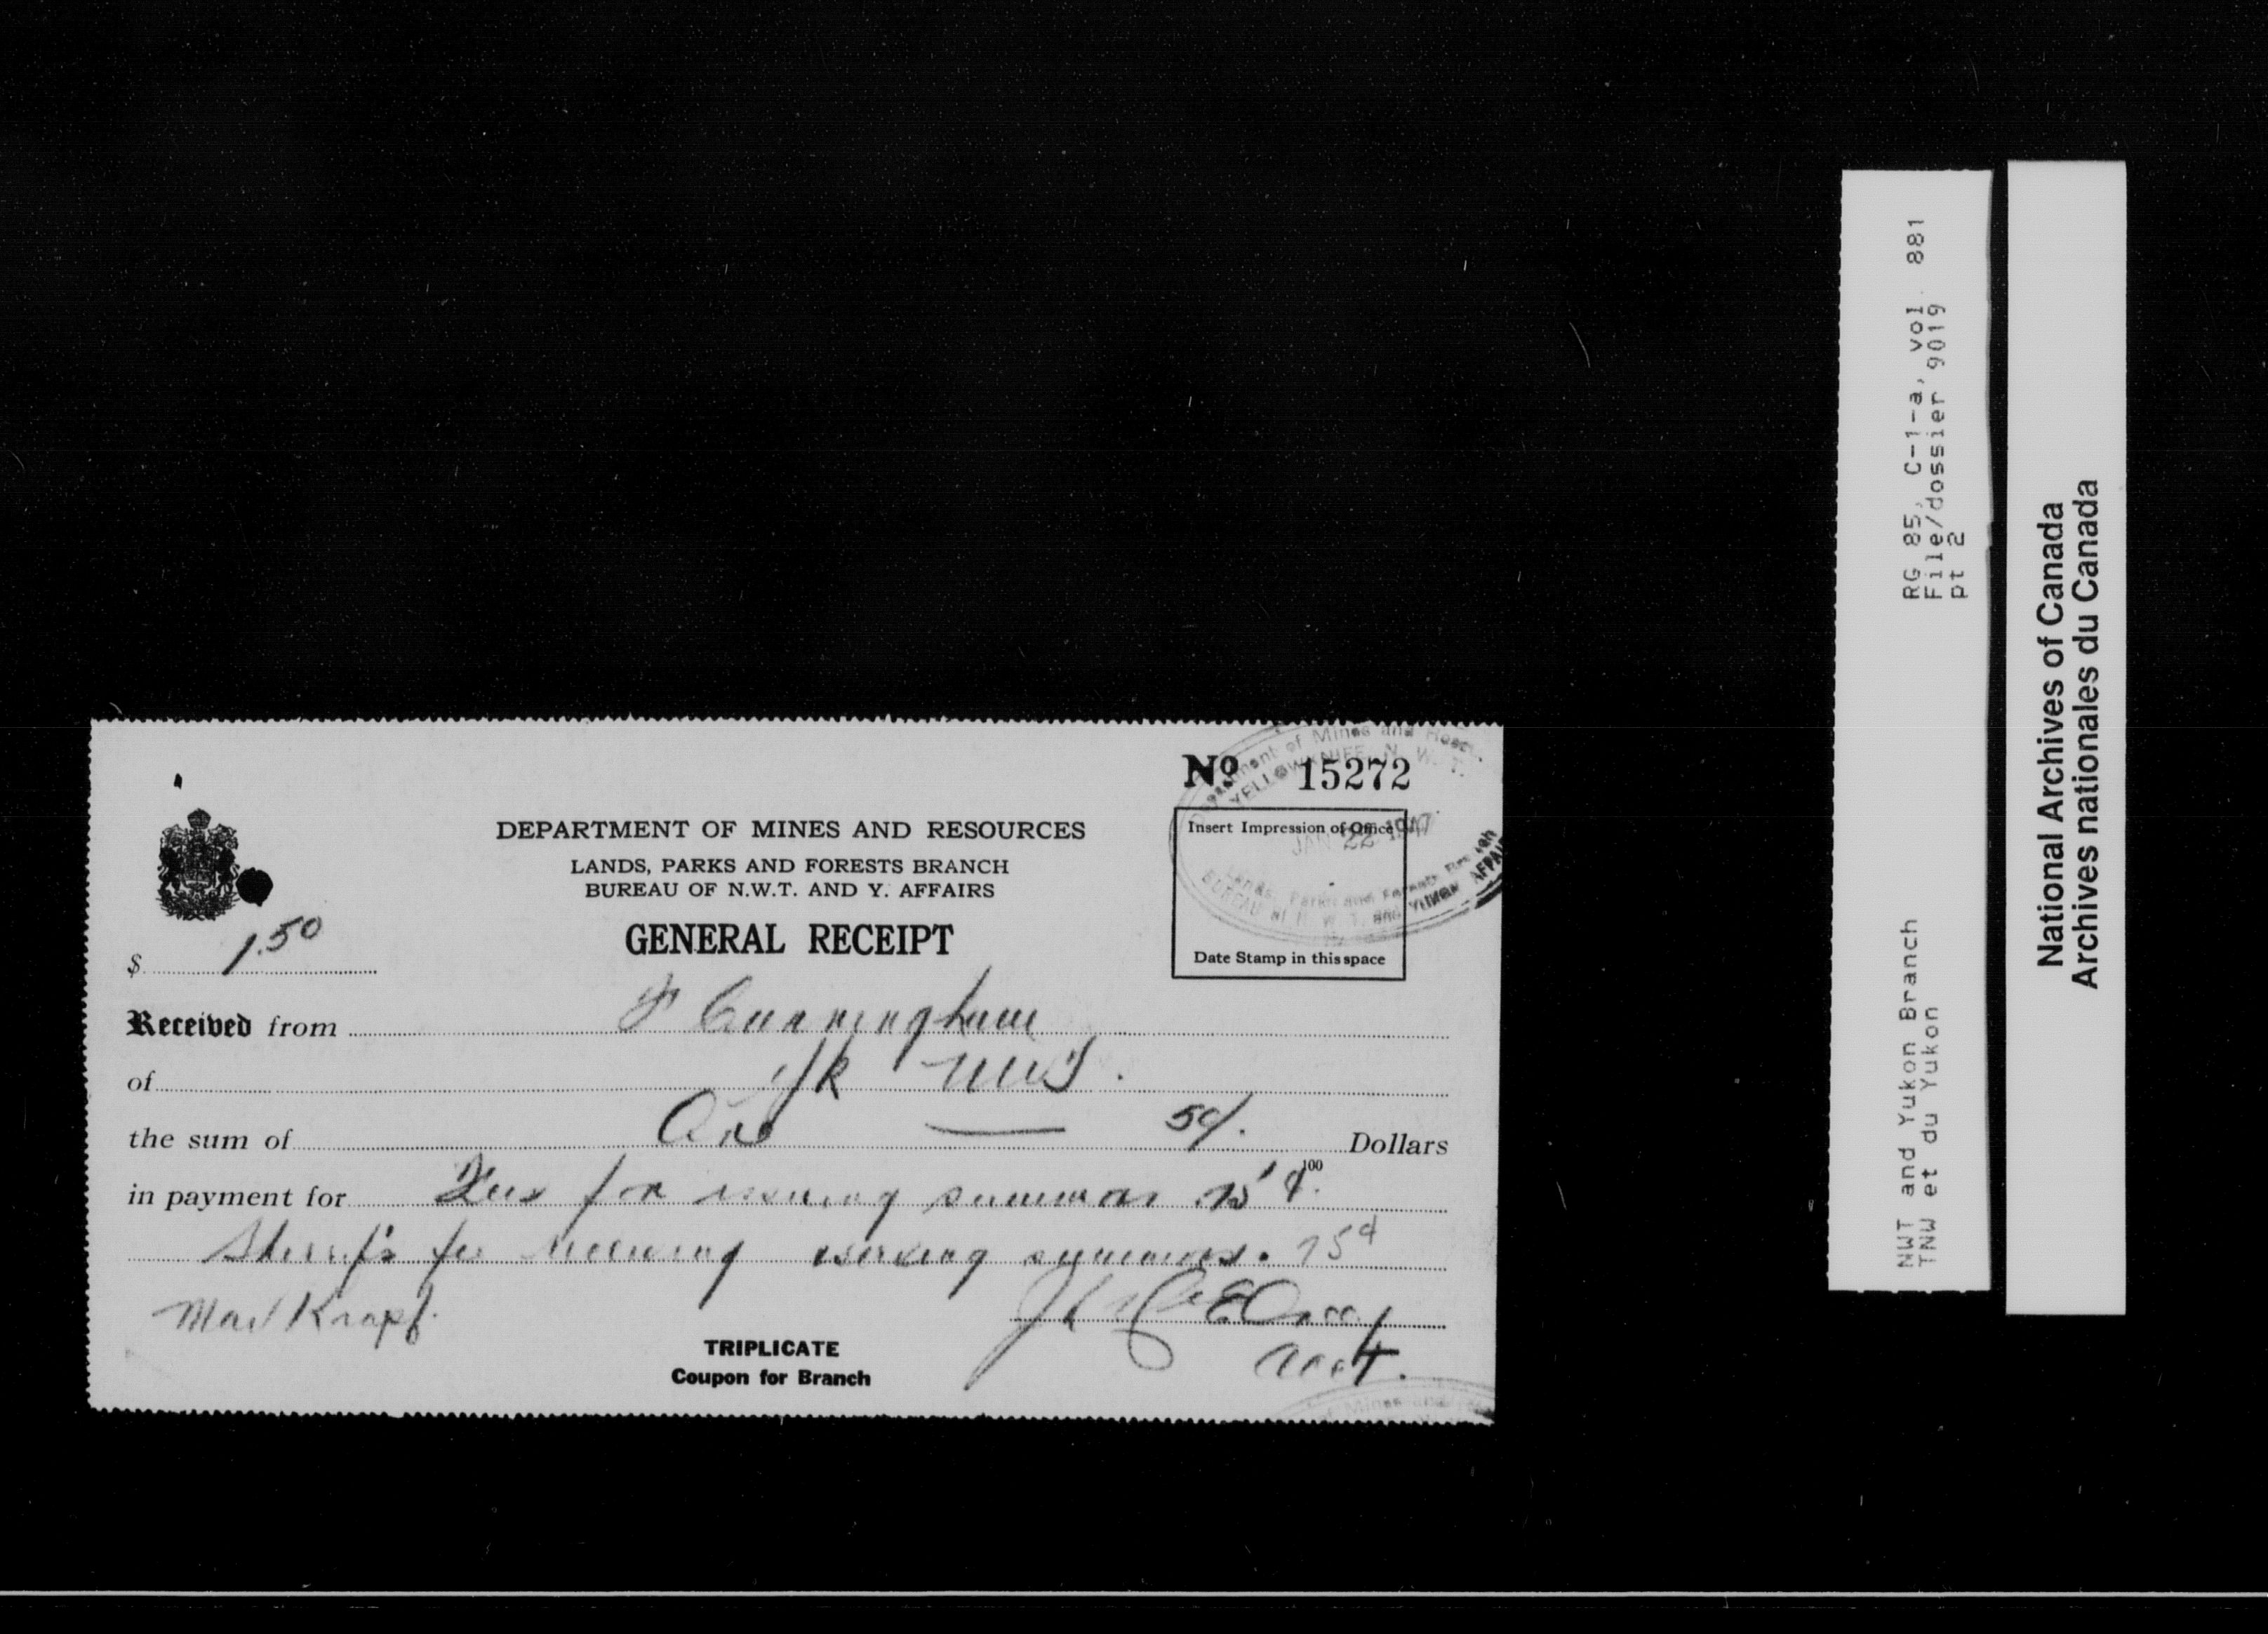 No 15272
Department of Mines and
YELLOWKNIFE, N. W. T.
JAN 22 1947
Lands, Parks and Forests Branch
BUREAU of N. W. T. and YUKON AFFAIRS
Insert Impression of Office
Date Stamp in this space
DEPARTMENT OF MINES AND RESOURCES
LANDS, PARKS AND FORESTS BRANCH
BUREAU OF N.W.T. AND Y. AFFAIRS
GENERAL RECEIPT
$ 1.50
Received from F Cunningham
of YK NWT.
the sum of One — 50/. 100 Dollars
in payment for Fees for issuing summons 75¢.
Sheriff's fee receiving serving summons. 75¢
Max Krapf.
Acct.
TRIPLICATE
Coupon for Branch
of Mines and
NWT and Yukon Branch
TNW et du Yukon
RG 85, C-1-a, vol. 881
File/dossier 9019
pt 2
National Archives of Canada
Archives nationales du Canada